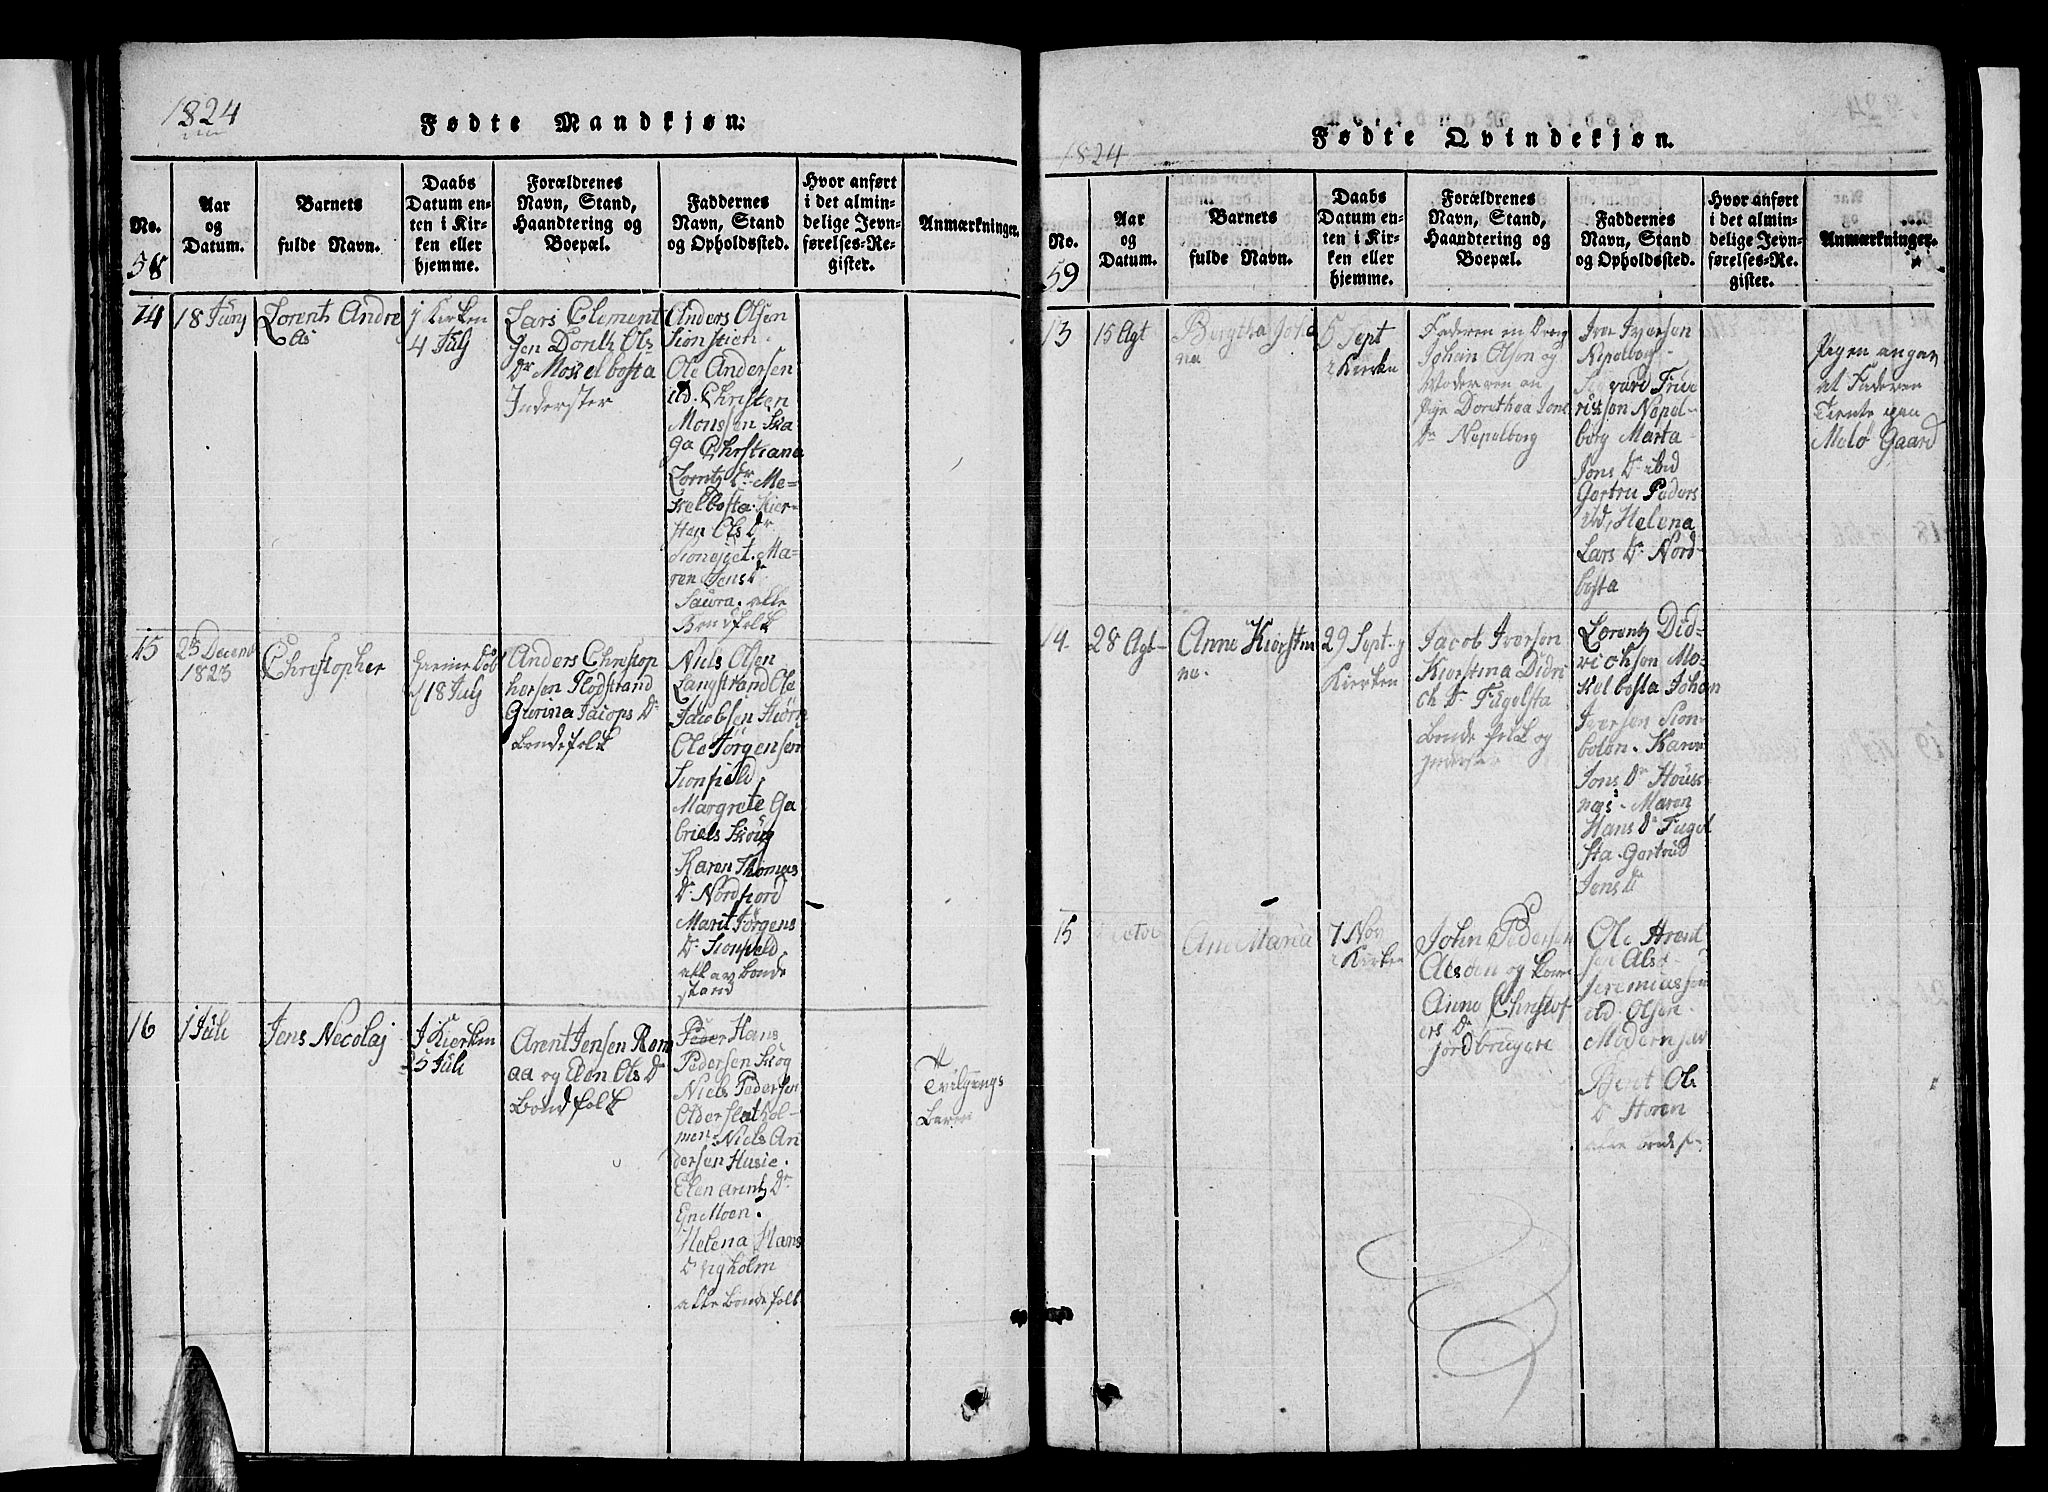 1824
Fødte Mandkjøn.
No.
58
Aar
og
Datum.
Barnets
fulde Navn.
Daabs
Datum en-
ten i Kir-
ken eller
hjemme.
Forældrenes
Navn, Stand,
Haandtering og
Boepæl.
Faddernes
Navn, Stand
og Opholdssted.
Hvor anført
i det almin-
delige Jevn-
førelses-Re-
gister.
Anmærkninger.
14
18 Junj
Lorentz Andre
as
j Kirken
4 Julj
Lars Clement
sen Dorthe Ols
Dr Moskelbosta
Inderster
Anders Olsen
Ole Andersen
ibd. Christen
Monssen Ska
ga Christiana
Lorntz Dr Mo-
skelbosta. Kier-
sten Ols Dr
Ma-
ren Jens Dr
alle
Bondfolk
15
25 Decemb
1823
Christopher
hjemme døbt
18 Julj
Anders Christop
hersen Flodstrand
Jacops Dr
bondefolk
Niels Olsen
Langstrand Ole
Jacobsen
Ole Jørgensen
Margrete Ga
briels Skoug
Karen Thomas
Dr Nordfiord
Marit Jørgens
Dr
alle av bonde
stand
16
1 Juli
Jens Necolaj
J Kierken
25 Juli
Arent Jensen Rom
aa og Elen Ols Dr
Bondfolk
Peder Hans
Pedersen Skog
Niels Pedersen
Olderslat Hol-
men. Niels An
dersen Husie.
Elen arentz Dr
Enemoen.
Helena Hans
Dr vigholm
alle bondefolk
Tvilgings
barn
1824
Fødte Qvindekjøn.
No.
59
Aar
og
Datum.
Barnets
fulde Navn.
Daabs
Datum en-
ten i Kir-
ken eller
hjemme.
Forældrenes
Navn, Stand,
Haandtering og
Boepæl.
Faddernes
Navn, Stand
og Opholdssted.
Hvor anført
i det almin-
delige Jevn-
førelses-Re-
gister.
Anmærkninger.
13
15 Agt
Bergtha Joha
na
5 Sept
i Kirken
Faderen en Dreng
Johan Olsen og
Moderen en
Pige Dorethea Jons
Dr Nepelborg
Iver Iversen
Nepelborg
Sigvard Fride
ricksen Nepel-
borg Marta
Jons Dr ibid
Gertru Peders
ibd, Helena
Lars Dr Nord-
bosta
Pigen angav
at Faderen
Tiente paa
Melø Gaard
14.
28 Agt
Anne Kierstin
na.
29 Sept j
Kierken
Jacob Iversen
Kierstina Didri
ch Dr Fugelsta
bonde folk og
Inderster
Lorentz Did-
richsen Mo-
skelbosta Johan
Iversen
Karen
Jons Dr Houss
næs. Maren
Hans Dr Fugel
sta. Gertrud
Jens Dr
15
Octob
Ane Maria
7 Nov
i Kirken
John Pedersen
Alsøen og kone
Anne Christof
ers Dr
jordbrugere
Ole Arent
sen Alsø
Jeremiassen
ibd Olsen
Berit Ols
Dr
alle bondef